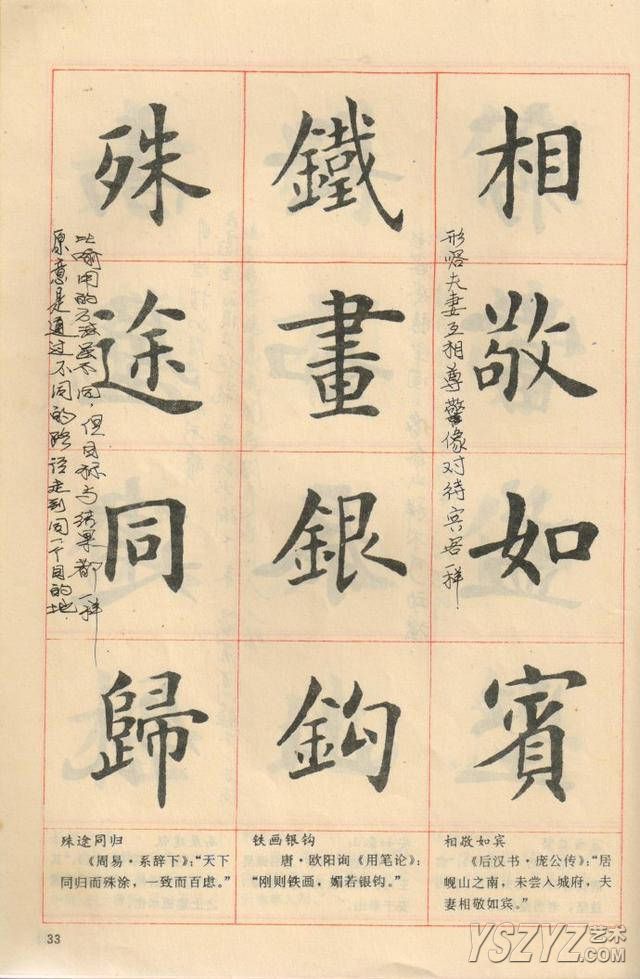 相敬如賓
形容夫妻互相尊警像对待宾客一样
鐵畫銀鈎
殊途同歸
比喻用的方法虽不同，但目标与结果都一样
原意是通过不同的路径走到同一个目的地
相敬如宾
《后汉书·庞公传》：“居
岘山之南，未尝入城府，夫
妻相敬如宾。”
铁画银钩
唐·欧阳询《用笔论》：
“刚则铁画，媚若银钩。”
殊途同归
《周易·系辞下》：“天下
同归而殊涂，一致而百虑。”
33
YSZYZ艺术
.com